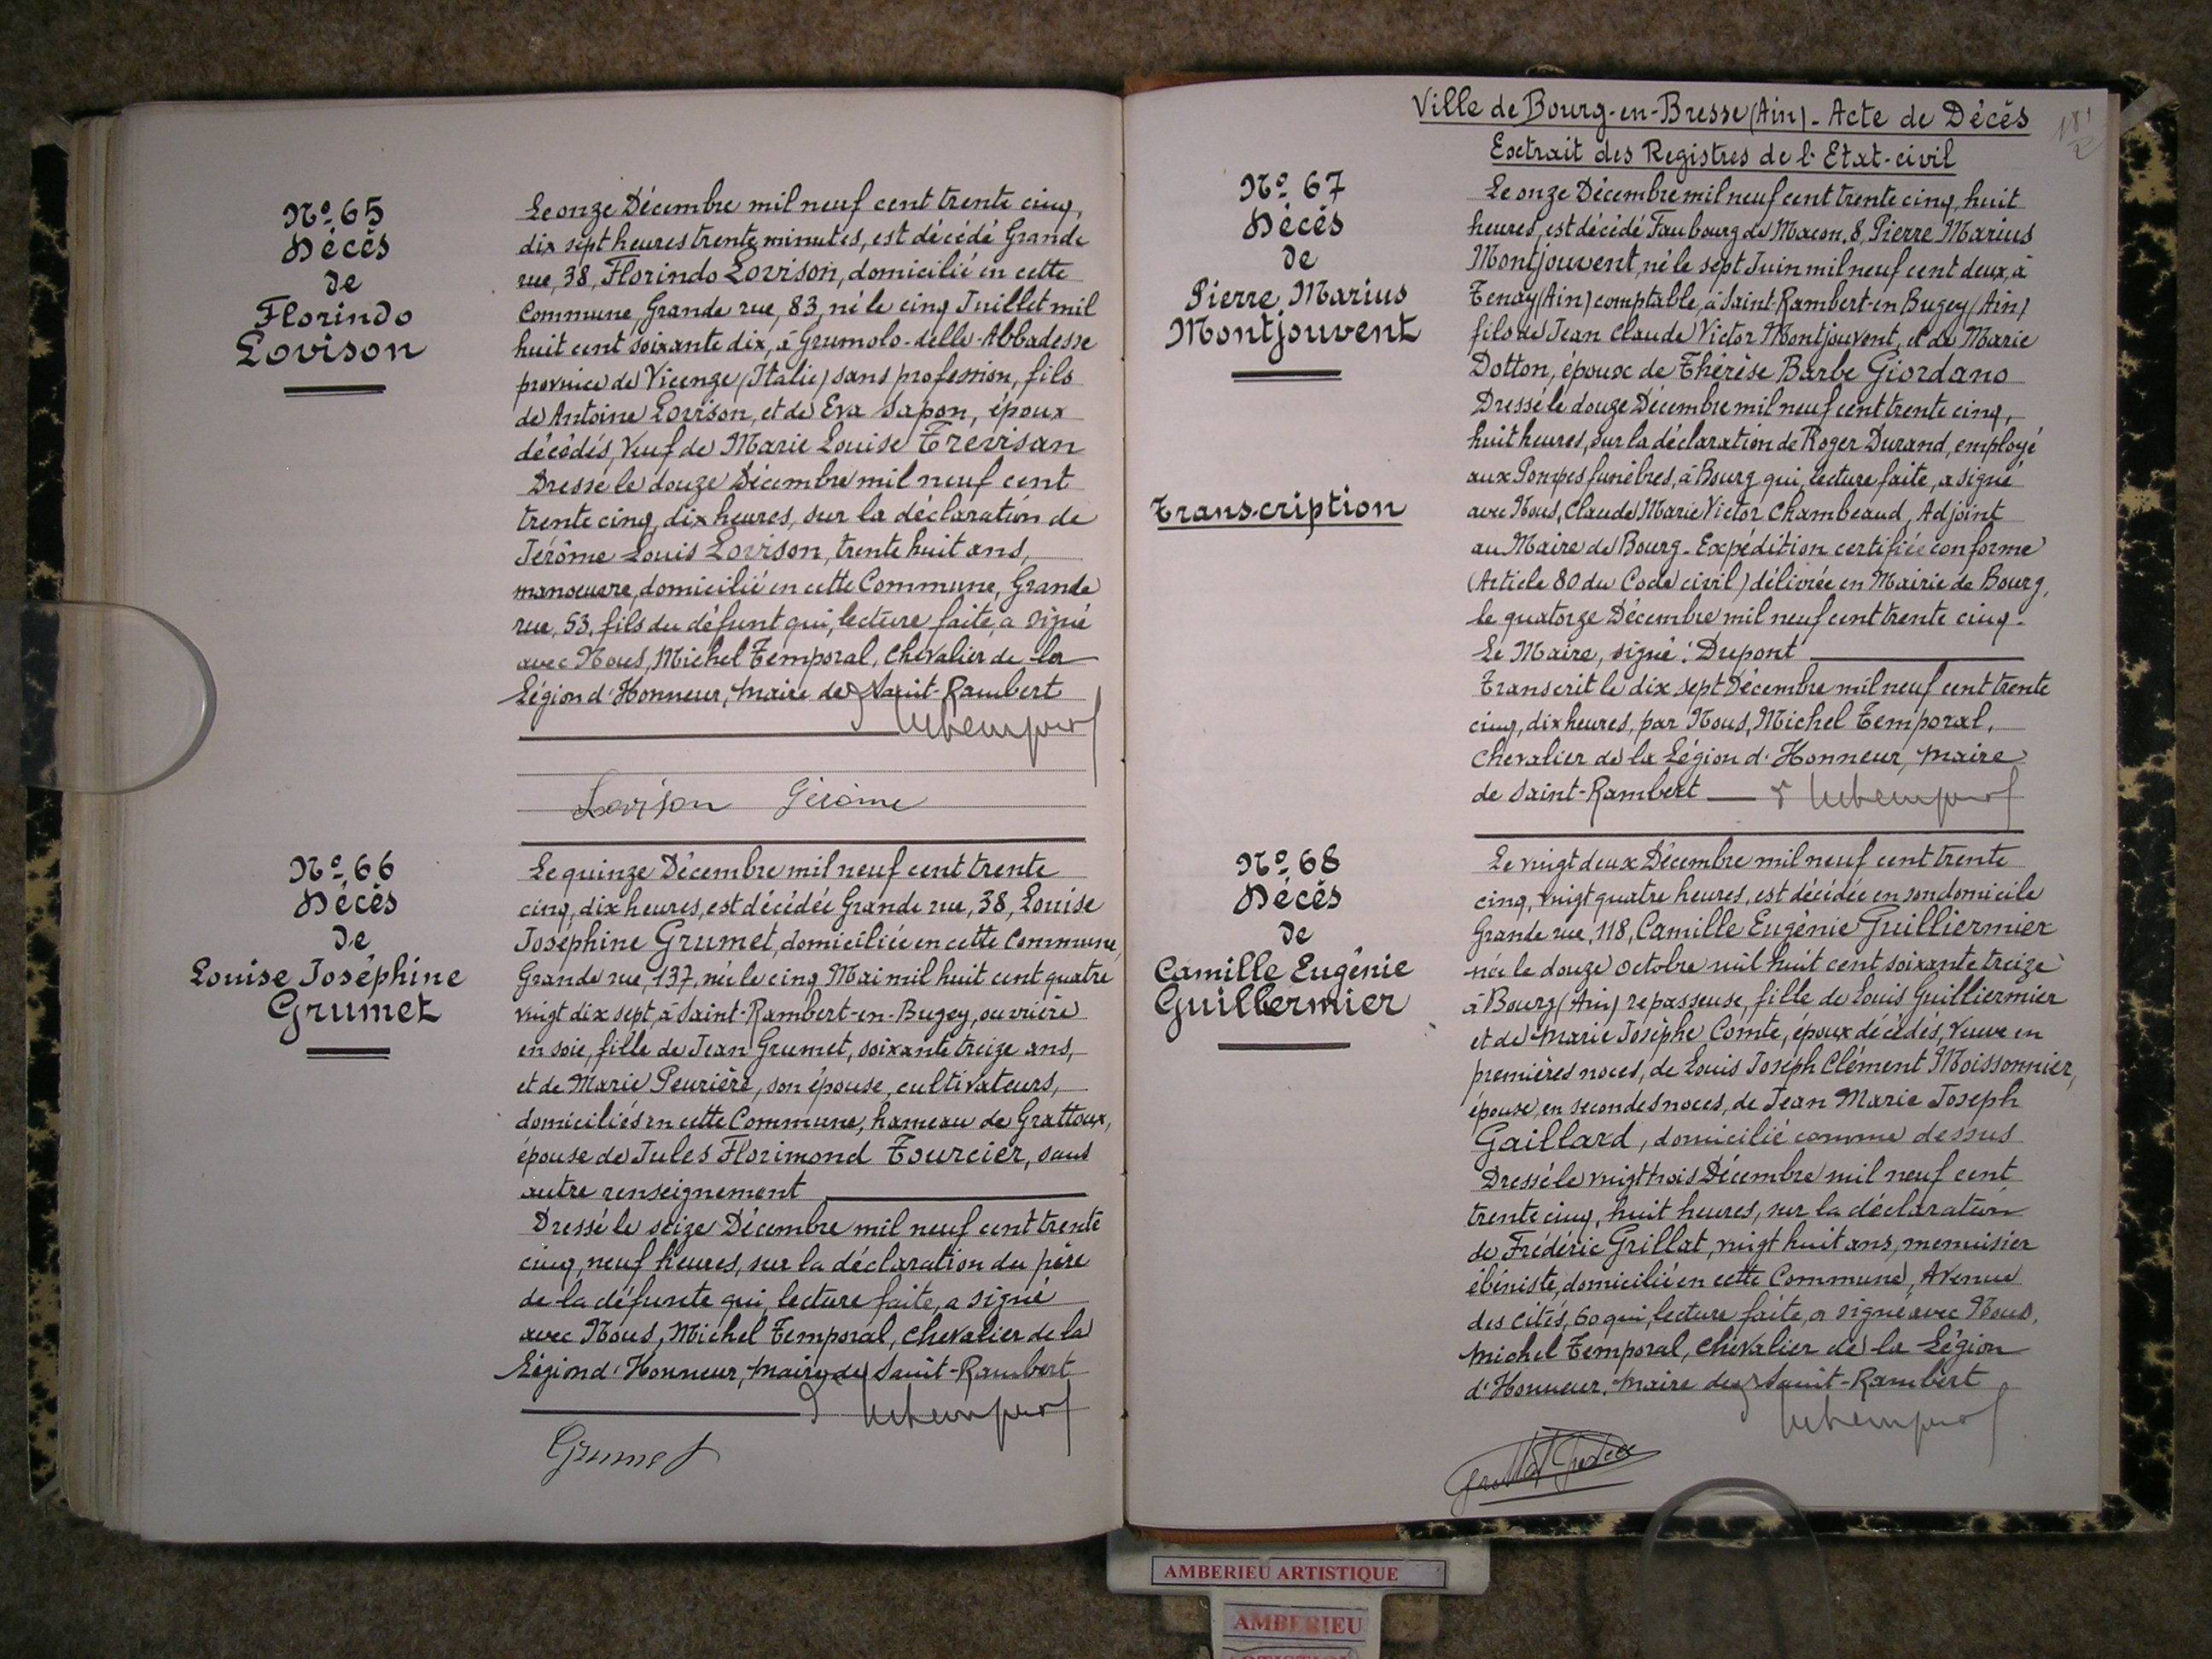 Nº 65
Décès
de
Florindo
Lovison
Le onze Décembre mil neuf cent trente cinq,
dix sept heures trente minutes, est décédé Grande
rue, 38, Florindo Lovison, domicilié en cette
Commune, Grande rue, 83, né le cinq Juillet mil
huit cent soixante dix, à Grumolo-delle-Abbadesse
province de Vicenze (Italie) sans profession, fils
de Antoine Lovison, et de Eva Sapon, époux
décédés, Veuf de Marie Louise Trevisan
Dressé le douze Décembre mil neuf cent
trente cinq, dix heures, sur la déclaration de
Jérôme Louis Lovison, trente huit ans,
manoeuvre, domicilié en cette Commune, Grande
rue, 53, fils du défunt qui, lecture faite, a signé
avec Nous, Michel Temporal, Chevalier de la
Légion d'Honneur, Maire de Saint-Rambert
Lovison Gérôme
Nº 66
Décès
de
Louise Joséphine
Grumet
Le quinze Décembre mil neuf cent trente
cinq, dix heures, est décédée Grande rue, 38, Louise
Joséphine Grumet, domiciliée en cette Commune,
Grande rue, 137, née le cinq Mai mil huit cent quatre
vingt dix sept, à Saint-Rambert-en-Bugey, ouvrière
en soie, fille de Jean Grumet, soixante treize ans,
et de Marie Peurière, son épouse, cultivateurs,
domiciliés en cette Commune, hameau de Grattoux,
épouse de Jules Florimond Tourcier, sans
autre renseignement
Dressé le seize Décembre mil neuf cent trente
cinq, neuf heures, sur la déclaration du père
de la défunte qui, lecture faite, a signé
avec Nous, Michel Temporal, Chevalier de la
Légion d'Honneur, Maire de Saint-Rambert
Grumet
Ville de Bourg-en-Bresse (Ain) - Acte de Décès
Extrait des Registres de l'Etat-civil
Nº 67
Décès
de
Pierre Marius
Montjouvent
Transcription
Le onze Décembre mil neuf cent trente cinq, huit
heures, est décédé Faubourg de Macon, 8, Pierre Marius
Montjouvent, né le sept Juin mil neuf cent deux, à
Tenay (Ain) comptable, à Saint-Rambert-en Bugey (Ain)
fils de Jean Claude Victor Montjouvent, et de Marie
Dotton, époux de Thérèse Barbe Giordano
Dressé le douze Décembre mil neuf cent trente cinq,
huit heures, sur la déclaration de Roger Durand, employé
aux Pompes funèbres, à Bourg qui, lecture faite, a signé
avec Nous, Claude Marie Victor Chambeaud, Adjoint
au Maire de Bourg - Expédition certifiée conforme
(Article 80 du Code civil) délivrée en Mairie de Bourg,
le quatorze Décembre mil neuf cent trente cinq.
Le Maire, signé: Dupont
Transcrit le dix sept Décembre mil neuf cent trente
cinq, dix heures, par Nous, Michel Temporal,
Chevalier de la Légion d'Honneur, Maire
de Saint-Rambert
Nº 68
Décès
de
Camille Eugénie
Guillermier
Le vingt deux Décembre mil neuf cent trente
cinq, vingt quatre heures, est décédée en son domicile
Grande rue, 118, Camille Eugénie Guilliermier
née le douze octobre mil huit cent soixante treize
à Bourg (Ain) repasseuse, fille de Louis Guilliermier
et de Marie Josephe Comte, époux décédés, Veuve en
premières noces, de Louis Joseph Clément Moissonnier,
épouse, en secondes noces, de Jean Marie Joseph
Gaillard, domicilié comme dessus
Dressé le vingt trois Décembre mil neuf cent
trente cinq, huit heures, sur la déclaration
de Frédéric Grillat, vingt huit ans, menuisier
ébéniste, domicilié en cette Commune, Avenue
des cités, 60 qui, lecture faite, a signé avec Nous,
Michel Temporal, Chevalier de la Légion
d'Honneur, Maire de Saint-Rambert
AMBERIEU ARTISTIQUE
AMBERIEU